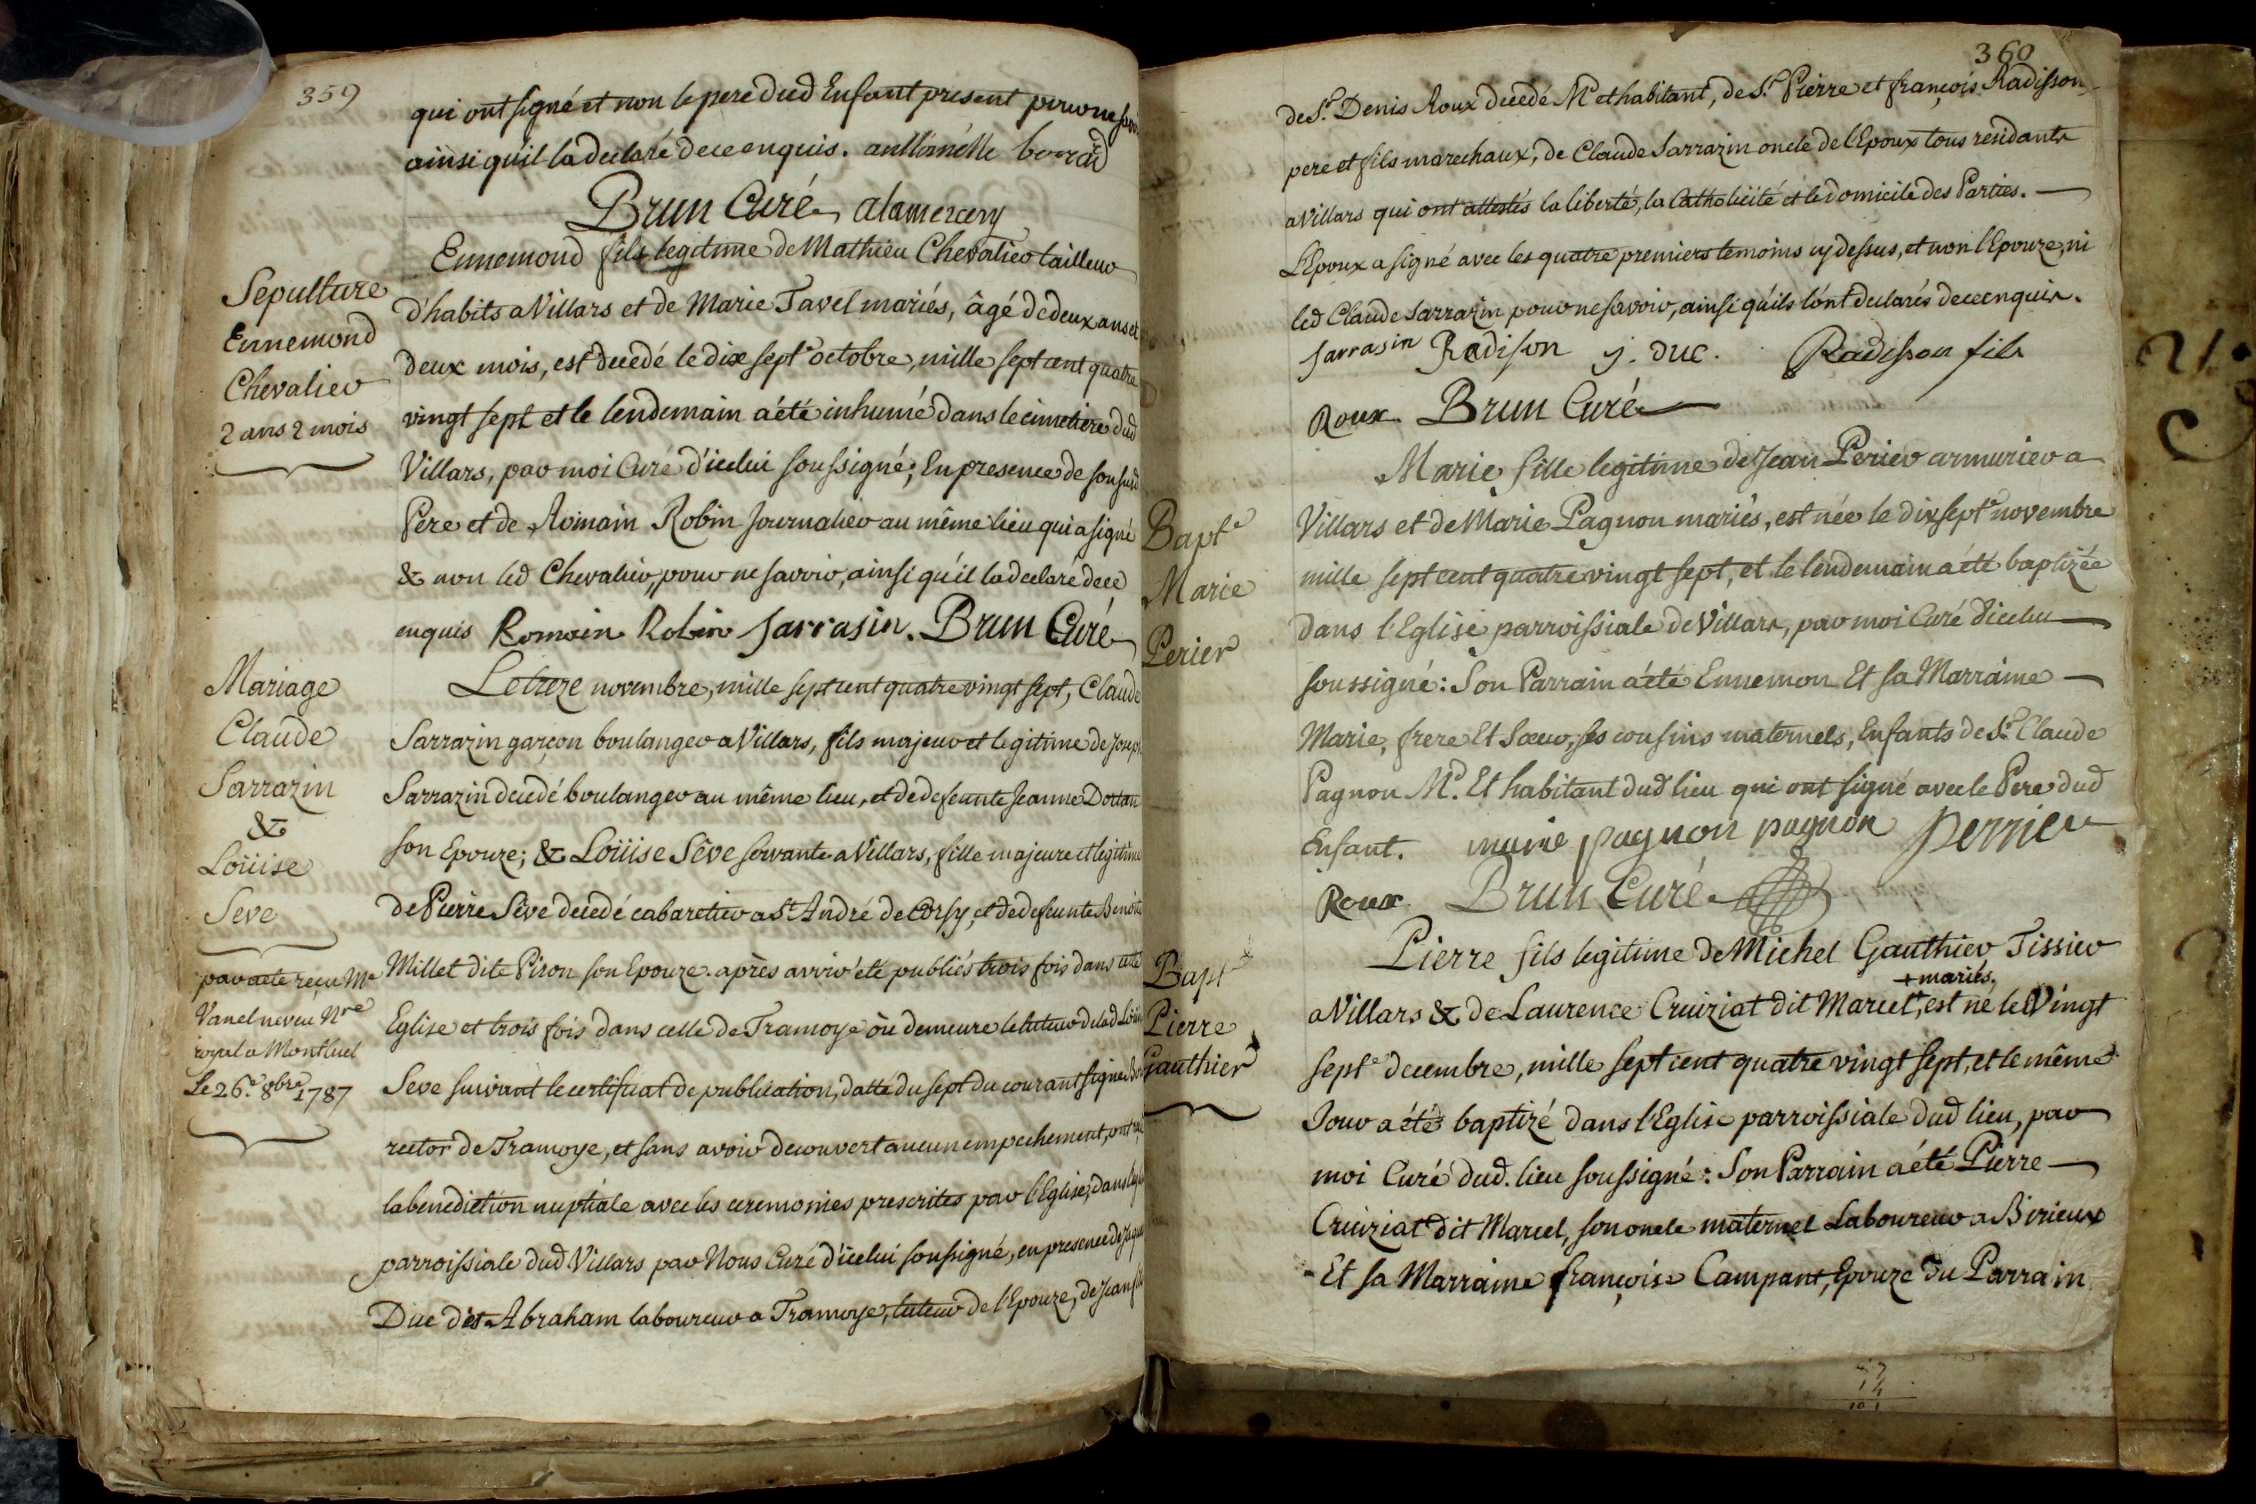 359
qui ont signé et non le pere dud Enfant present pour ne
ainsi qu'il la declaré de ce enquis. anthoinette
Brun Curé alamercery
Sepulture
Ennemond
Chevalier
2 ans 2 mois
Ennemond fils legitime de Mathieu Chevalier tailleur
d'habits a Villars et de Marie Tavel mariés, âgé de deux ans et
deux mois, est decedé le dix sept.e octobre, mille sept cent quatre
vingt sept et le lendemain a été inhumé dans le cimetiere dud
Villars, par moi Curé d'icelui soussigné; En presence de son susd
Pere et de Romain Robin Journalier au même lieu qui a signé
& non led Chevalier, pour ne savoir, ainsi qu'il la declaré de ce
enquis Romain Robin Sarrasin. Brun Curé
Mariage
Claude
Sarrazin
&
Loüise
Seve
par acte reçu Me
Vanel neveu Nre
royal a Montluel
Le 26.e 8bre 1787
Le treze novembre, mille sept cent quatre vingt sept, Claude
Sarrazin garçon boulanger a Villars, fils majeur et legitime de
Sarrazin decedé boulanger au même lieu, et de defeunte Jeanne
son Epouze; & Loüise Sève servante a Villars, fille majeure et legitime
de Pierre Sève decedé cabaretier a St André de Corsy, et de defeunte Benoite
Millet dite Piron son Epouze. après avoir été publiés trois fois dans cette
Eglise et trois fois dans celle de Tramoye où demeure le tuteur de lad
Seve suivant le certificat de publication, datté du sept du courant signé
rector de Tramoye, et sans avoir decouvert aucun empechement, ont
la benediction nuptiale avec les ceremonies prescrites par l'Eglise, dans
parroissiale dud Villars par Nous Curé d'icelui soussigné, en presence de
Duc dit Abraham laboureur a Tramoye, tuteur de l'Epouze, de Jean
360
de Sr. Denis Roux decedé Md et habitant, de Sr. Pierre et françois Radisson
pere et fils marechaux, de Claude Sarrazin oncle de l'Epoux tous residants
a Villars qui ont attestés la liberté, la Catholicité et le domicile des Parties.
L'Epoux a signé avec les quatre premiers temoins cy dessus, et non l'Epouze, ni
led Claude Sarrazin pour ne savoir, ainsi qu'ils l'ont declarés de ce enquis.
Sarrasin Radison j. duc. Radisson fils
Roux Brun Curé
Bapte
Marie
Perier
Marie fille legitime de Jean Perier armurier a
Villars et de Marie Pagnon mariés, est née le dix sept.e novembre
mille sept cent quatre vingt sept, et le lendemain a été baptizée
dans l'Eglise parroissiale de Villars, par moi Curé d'icelui
soussigné: Son Parrain a été Ennemon Et sa Marraine
Marie, frere Et Sœur, ses cousins maternels, Enfants de Sr. Claude
Pagnon Md. Et habitant dud lieu qui ont signé avec le Pere dud
Enfant. marie pagnon pagnon perrier
Roux Brun Curé
Bapte
Pierre
Gauthier
Pierre fils legitime de Michel Gauthier Tissier
+ mariés,
a Villars & de Laurence Cruiziat dit Marcel+, est né le Vingt
sept.e decembre, mille sept cent quatre vingt sept, et le même
Jour a été baptizé dans l'Eglise parroissiale dud lieu, par
moi Curé dud. lieu soussigné: Son Parrain a été Pierre
Cruiziat dit Marcel, son oncle maternel Laboureur a Birieux
Et sa Marraine françoise Campant, Epouze du Parrain